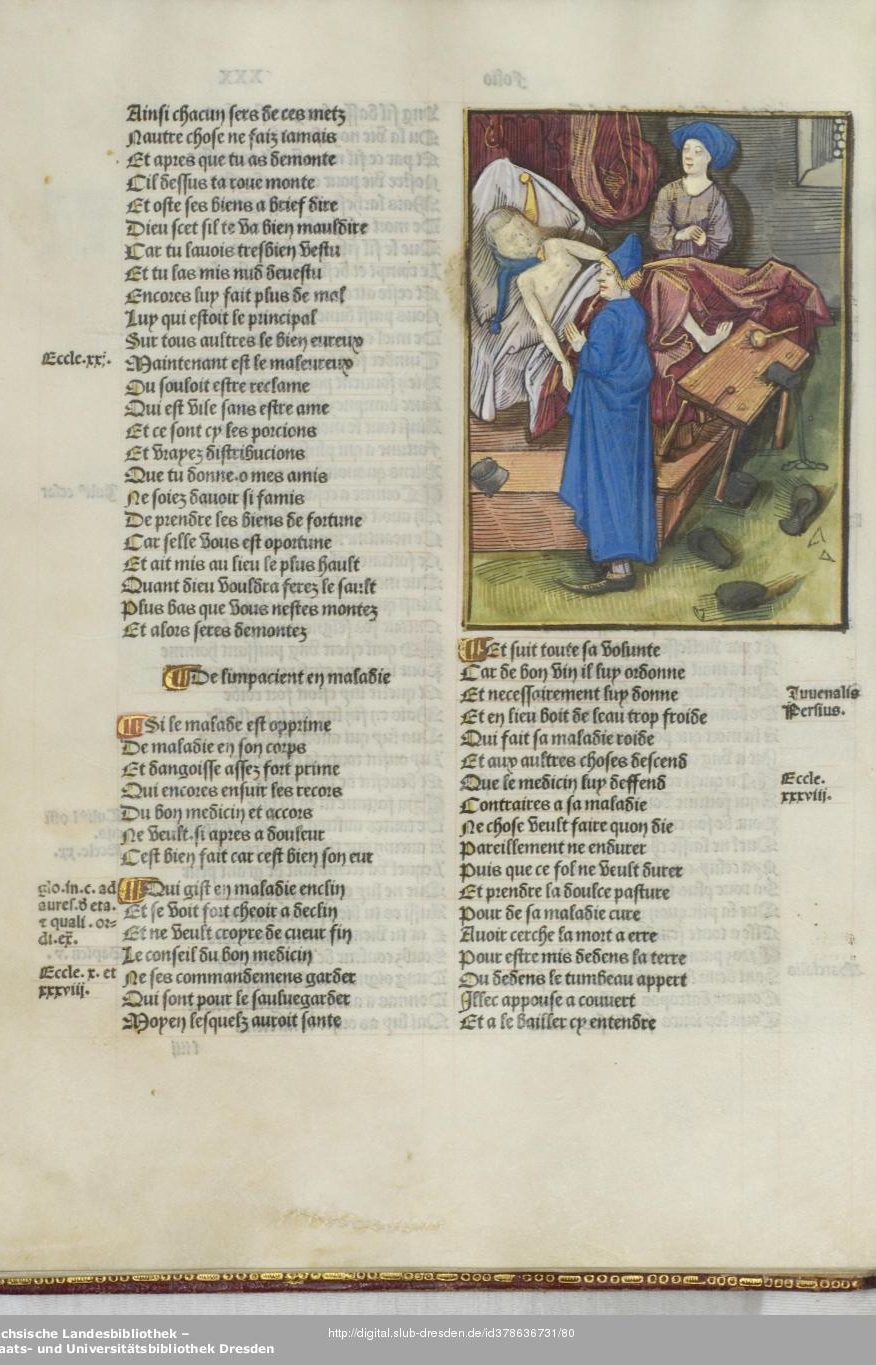 Ainsi chacun sers de ces metz
Nautre chose ne faiz iamais
Et apres que tu as demonte
Cil dessus ta roue monte
Et oste ses biens a brief dire
Dieu scet sil te va bien mauldire
Car tu lauois tresbien vestu
Et tu las mis nud deuestu
Encores luy fait plus de mal
Luy qui estoit le principal
Sur tous aultres le bien eureux
Eccle.xx.
Maintenant est le maleureux
Ou souloit estre reclame
Qui est vile sans estre ame
Et ce sont cy les porcions
Et vrayez distribucions
Que tu donne.o mes amis
Ne soiez dauoir si famis
De prendre les biens de fortune
Car selle vous est oportune
Et ait mis au lieu le plus hault
Quant dieu vouldra ferez le sault
Plus bas que vous nestes montez
Et alors seres demontez
De limpacient en maladie
Si le malade est opprime
De maladie en son corps
Et dangoisse assez fort prime
Qui encores ensuir les recors
Du bon medicin et accors
Ne veult.si apres a douleur
Cest bien fait car cest bien son eur
glo.in.c. ad
aures.d eta.
τ quali. or=
di.ex.
Qui gist en maladie enclin
Et se voit fort cheoir a declin
Et ne veult croyre de cueur fin
Le conseil du bon medicin
Eccle. x. et
xxxviij.
Ne ses commandemens garder
Qui sont pour le sauluegarder
Moyen lesquelz auroit sante
Et suit toute sa volunte
Car de bon vin il luy ordonne
Et necessairement luy donne
Iuuenalis
Persius.
Et en lieu boit de leau trop froide
Qui fait sa maladie roide
Et aux aultres choses descend
Que le medicin luy deffend
Eccle.
xxxviij.
Contraires a sa maladie
Ne chose veult faire quon die
Pareillement ne endurer
Puis que ce fol ne veult durer
Et prendre la doulce pasture
Pour de sa maladie cure
Auoir cerche la mort a erre
Pour estre mis dedens la terre
Ou dedens le tumbeau appert
Illec appouse a couuert
Et a le bailler cy entendre
chsische Landesbibliothek –
aats- und Universitätsbibliothek Dresden
http://digital.slub-dresden.de/id378636731/80